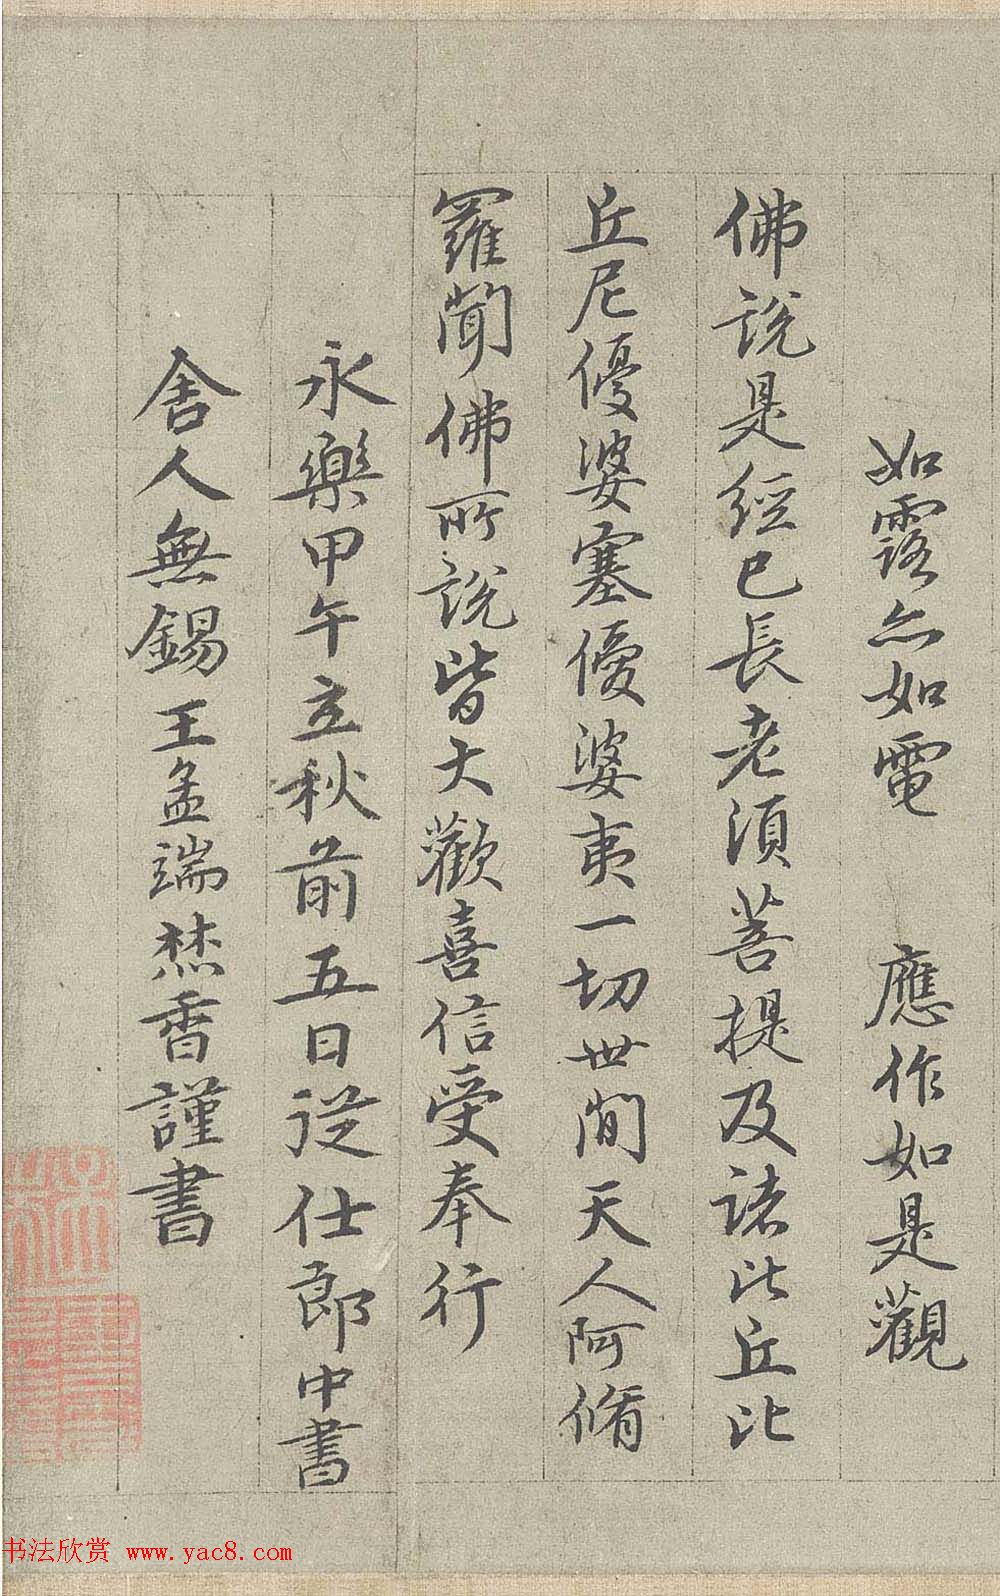 如露亦如電 應作如是觀
佛說是經已長老須菩提及諸比丘比
丘尼優婆塞優婆夷一切世間天人阿脩
羅聞佛所說皆大歡喜信受奉行
永樂甲午立秋前五日從仕郎中書
舍人無錫王孟端焚香謹書
书法欣赏 www.yac8.com